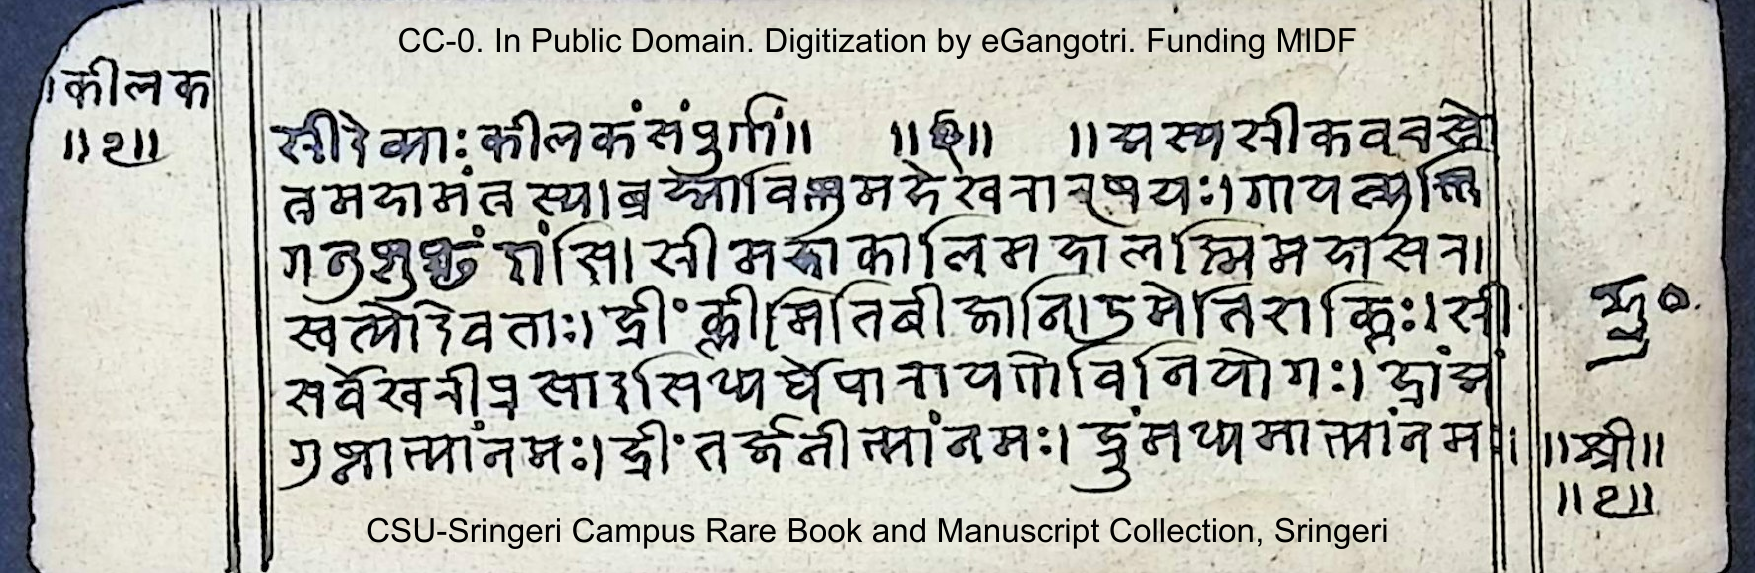 CC-0. In Public Domain. Digitization by eGangotri. Funding MIDF
।कीलक
॥२॥
कीलकंसंपुर्णां॥ ॥छ॥ ॥अस्यस्रीकवचस्तो
त्रमहामंत्रस्य।ब्रह्माविष्णुमहेस्वराऋषयः।गायत्र्युस्नि
स्रीमहाकालिमहालक्ष्मिमहासरा
स्वत्योदेवताः।ह्रीं क्लीमितिबीजानि।उमेतिशक्तिः।स्री
सर्वेस्वरीप्रसादसिध्यर्थेपारायणेविनियोगः।ह्रांअं
गुष्ठाभ्यांनमः।ह्रीं तर्जनीभ्यांनमः।ह्रुंमध्यमाभ्यांनमः।
॥श्री॥
॥२॥
CSU-Sringeri Campus Rare Book and Manuscript Collection, Sringeri